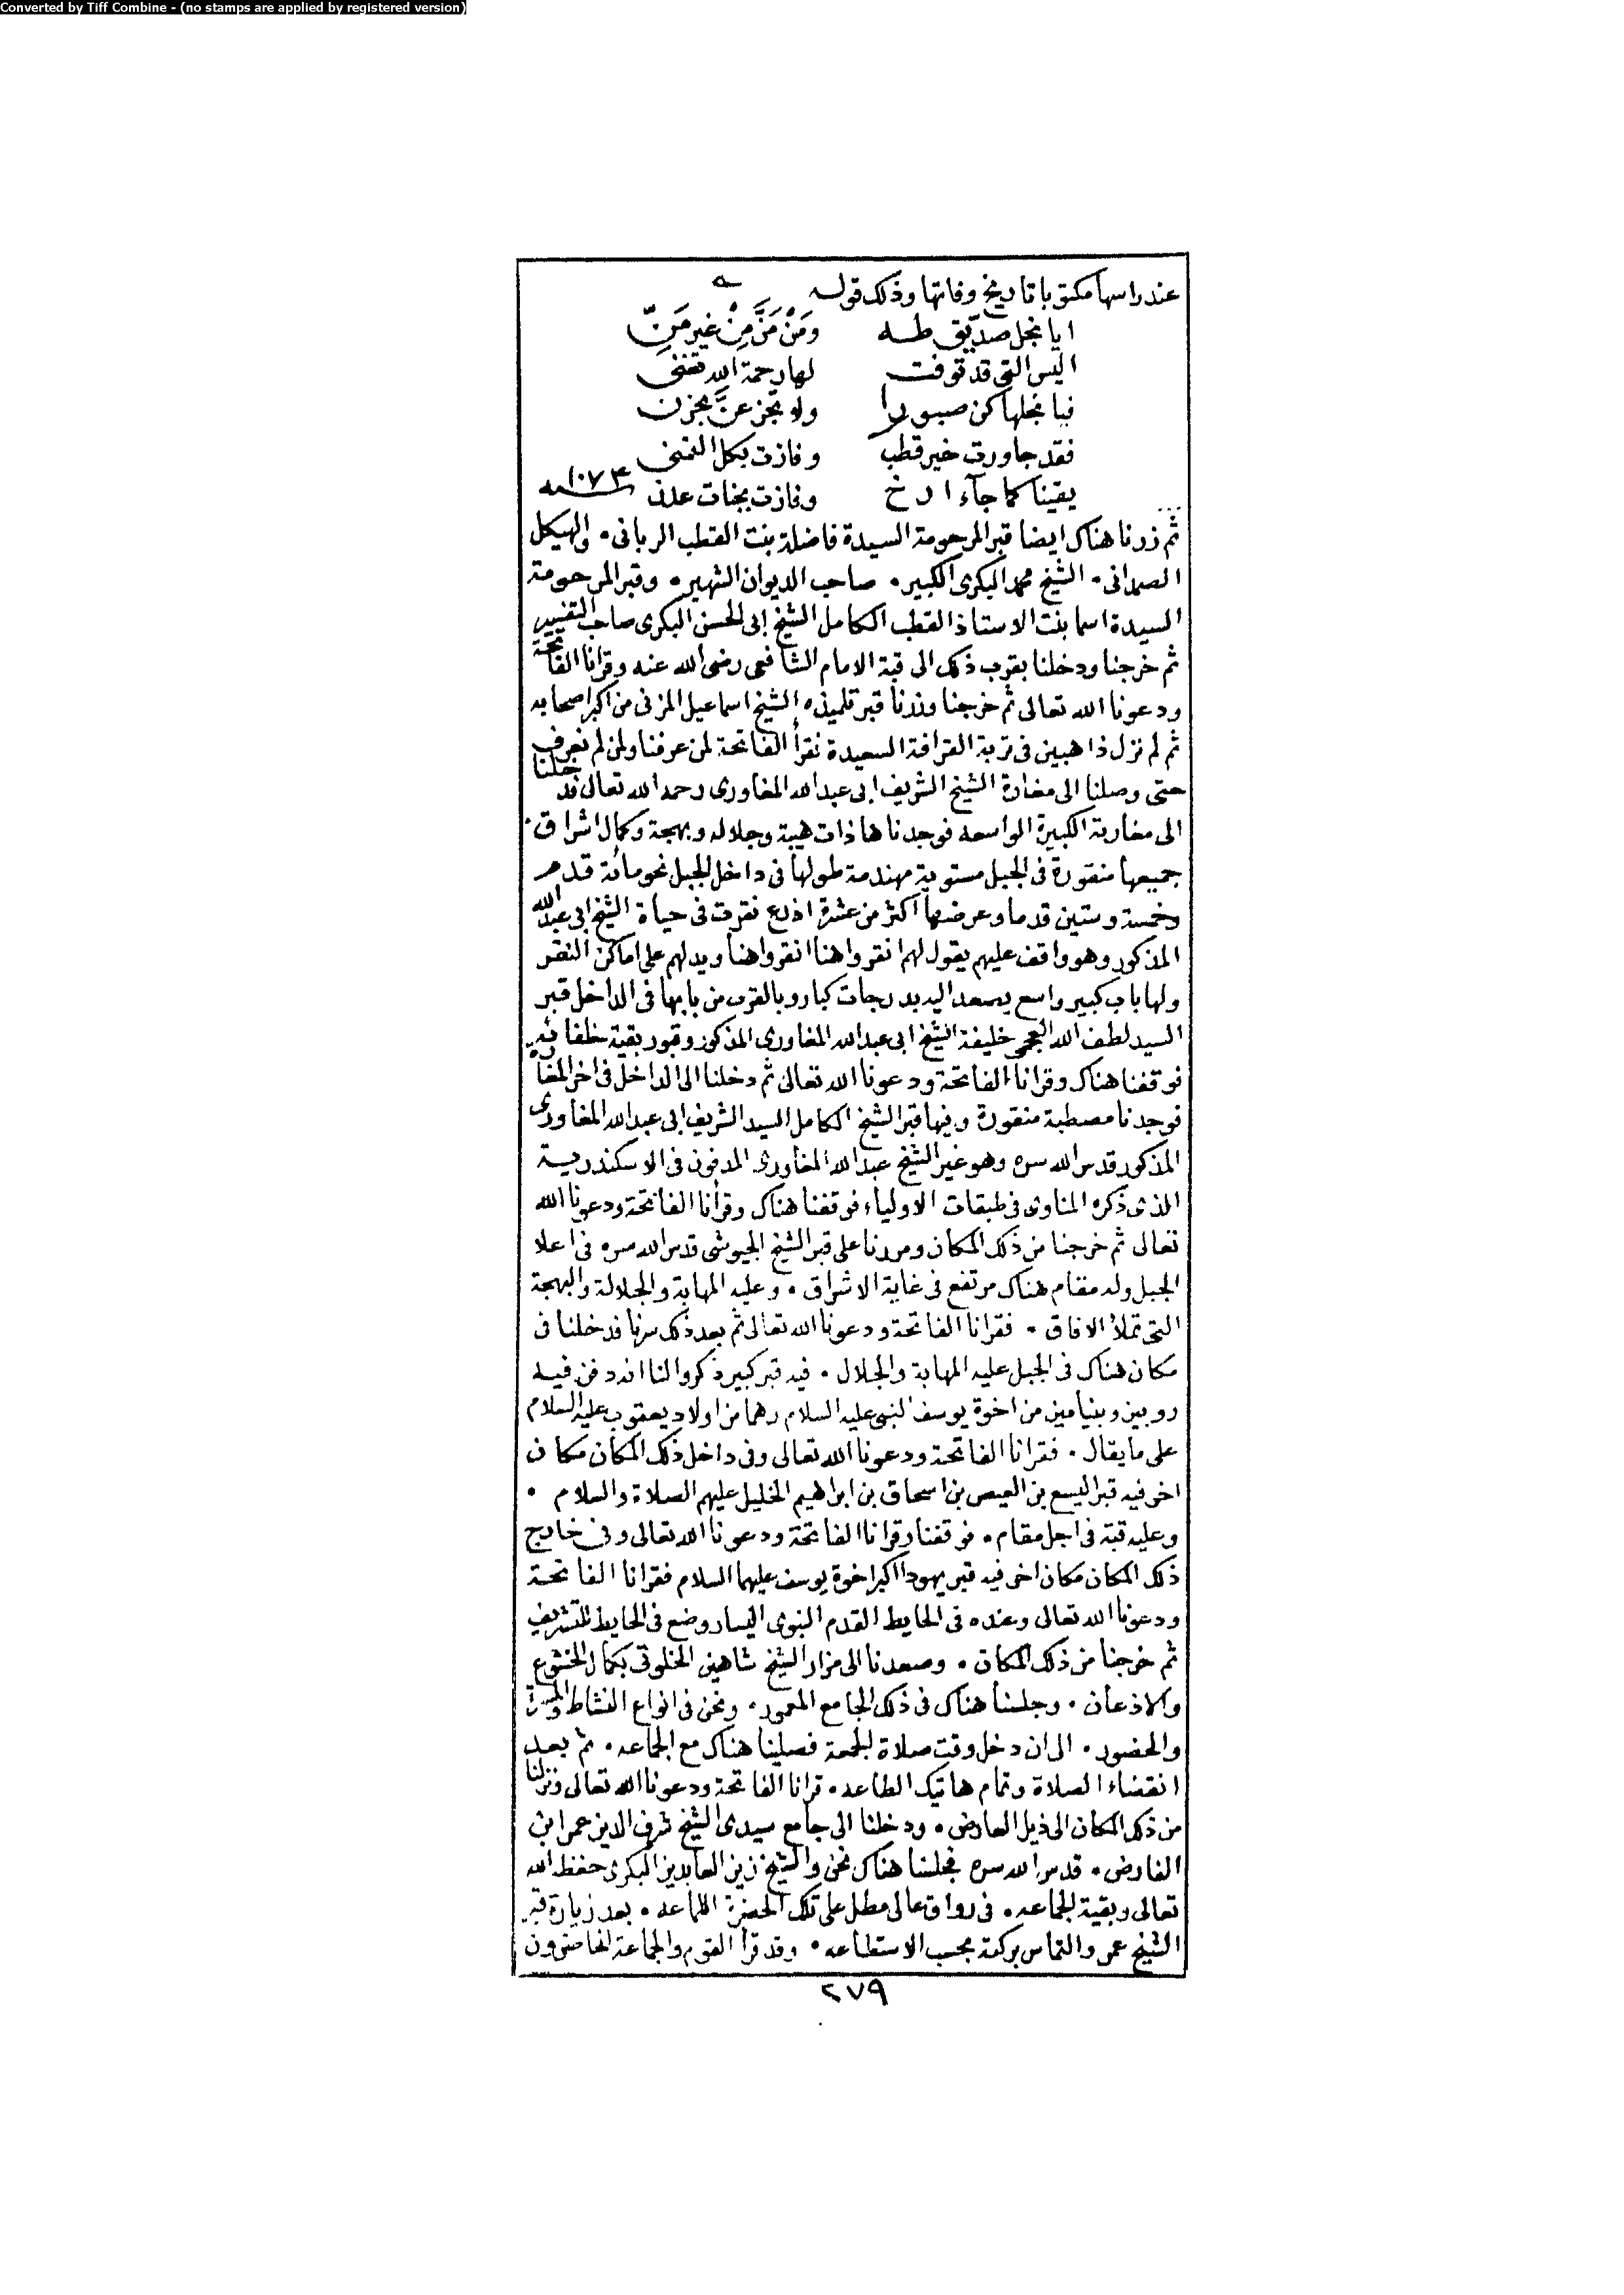 Converted by Tiff Combine - (no stamps are applied by registered version)
عند راسها مكتوبا تاريخ وفاتها وذلك قوله
ايا نجل صديق طـه ومَنْ مَنَّ مِنْ غير مَنِّ
اليس التي قد توفت لها رحمة الله تغني
فيا نجلها كن صبورا ولا تجزعنَّ بحزن
فقد جاورت خير قطب وفازت بكل التمني
يقينا كما جآء ارخ وفازت بجنات عدن ١٠٧٣
ثم زرنا هناك ايضا قبر المرحومة السيدة فاضلة بنت القطب الرباني ٠ والهيكل
الصمداني ٠ الشيخ محمد البكرى الكبير ٠ صاحب الديوان الشهير ٠ وقبر المرحومة
السيدة اسما بنت الاستاذ القطب الكامل الشيخ ابى الحسن البكرى صاحب التفسير
ثم خرجنا ودخلنا بقرب ذلك الى قبة الامام الشافعى رضى الله عنه وقرانا الفاتحة
ودعونا الله تعالى ثم خرجنا وزرنا قبر تلميذه الشيخ اسماعيل المزنى من اكبر اصحابه
ثم لم نزل ذاهبين فى تربة القرافة السعيدة نقرأ الفاتحة لمن عرفنا ولمن لم نعرف
حتى وصلنا الى مغارة الشيخ الشريف ابى عبد الله المغاورى رحمه الله تعالى فدخلنا
الى مغارته الكبيرة الواسعه فوجدناها ذات هيبة وجلاله وبهجة وكمال اشراق ٠
جميعها منقورة فى الجبل مستوية مهندمة طولها فى داخل الجبل نحو مائة قدم
وخمسة وستين قدما وعرضها اكثر من عشرة اذرع نقرت فى حياة الشيخ ابى عبد الله
المذكور وهو واقف عليهم يقول لهم انقروا هنا انقروا هنا ويدلهم على اماكن النقر
ولها باب كبير واسع يصعد اليه بدرجات كبار وبالقرب من بابها فى الداخل قبر
السيد لطف الله العجمى خليفة الشيخ ابى عبد الله المغاورى المذكور وقبور بقية خلفائه
فوقفنا هناك وقرانا الفاتحة ودعونا الله تعالى ثم دخلنا الى الداخل فى اخر المغارة
فوجدنا مصطبة منقورة وفيها قبر الشيخ الكامل السيد الشريف ابى عبد الله المغاورى
المذكور قدس الله سره وهو غير الشيخ عبد الله المغاورى المدفون فى الاسكندرية
الذى ذكره المناوى فى طبقات الاولياء فوقفنا هناك وقرأنا الفاتحة ودعونا الله
تعالى ثم خرجنا من ذلك المكان ومررنا على قبر الشيخ الجيوشى قدس الله سره فى اعلا
الجبل وله مقام هناك مرتفع فى غاية الاشراق ٠ وعليه المهابة والجلالة والبهجة
التى تملأ الافاق ٠ فقرانا الفاتحة ودعونا الله تعالى ثم بعد ذلك سرنا فدخلنا فى
مكان هناك فى الجبل عليه المهابة والجلال ٠ فيه قبر كبير ذكروا لنا انه دفن فيه
روبين وبنيامين من اخوة يوسف النبى عليه السلام وهما من اولاد يعقوب عليه السلام
على ما يقال ٠ فقرانا الفاتحة ودعونا الله تعالى وفى داخل ذلك المكان مكان
اخر فيه قبر اليسع بن العيص بن اسحاق بن ابراهيم الخليل عليهم الصلاة والسلام ٠
وعليه قبة فى اجل مقام ٠ فوقفنا وقرانا الفاتحة ودعونا الله تعالى وفى خارج
ذلك المكان مكان اخر فيه قبر يهودا اكبر اخوة يوسف عليهما السلام فقرانا الفاتحة
ودعونا الله تعالى وعنده فى الحايط القدم النبوى اليسار وضع فى الحايط للتشريف
ثم خرجنا من ذلك المكان ٠ وصعدنا الى مزار الشيخ شاهين الخلوتى بكمال الخشوع
والاذعان ٠ وجلسنا هناك فى ذلك الجامع المعمور ٠ ونحن فى انواع النشاط والمسرة
والحضور ٠ الى ان دخل وقت صلاة الجمعة فصلينا هناك مع الجماعه ٠ ثم بعد
انقضاء الصلاة وتمام هاتيك الطاعه ٠ قرانا الفاتحة ودعونا الله تعالى ونزلنا
من ذلك المكان الى ذيل العارض ٠ ودخلنا الى جامع سيدى الشيخ شرف الدين عمر ابن
الفارض ٠ قدس الله سره فجلسنا هناك نحن والشيخ زين العابدين البكرى حفظه الله
تعالى وبقية الجماعه ٠ فى رواق عالى مطل على تلك الحضرة اللماعه ٠ بعد زيارة قبر
الشيخ عمر والتماس بركته بحسب الاستطاعه ٠ وقد قرأ القوم والجماعة الحاضرون
٢٧٩